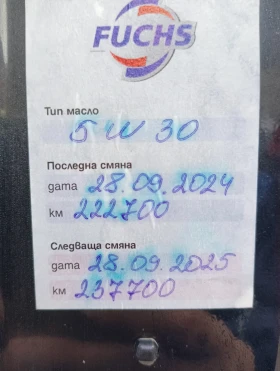 FUCHS
Тип масло
5W 30
Последна смяна
дата 28.09.2024
км 222700
Следваща смяна
дата 28.09.2025
км 237700